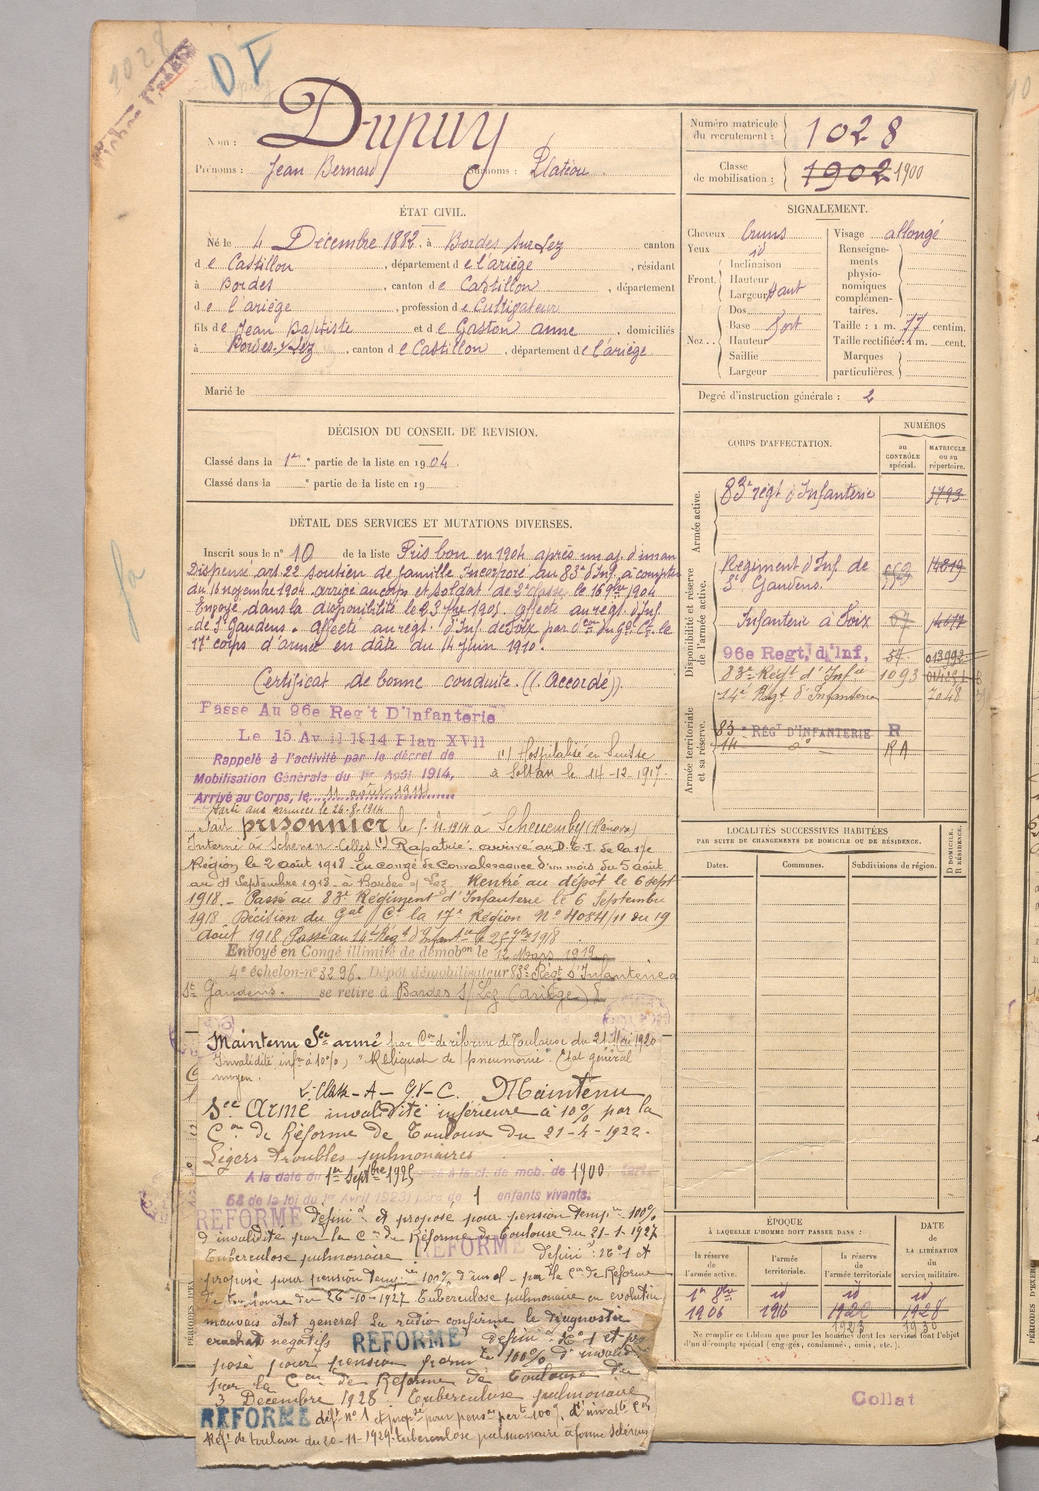 1028
DF
Nom : Dupuy
Prénoms : Jean Bernard Surnoms : Platéou
Numéro matricule du recrutement : 1028
Classe de mobilisation : 1902 1900
ÉTAT CIVIL.
Né le 4 Décembre 1882. à Bordes sur Lez canton
de Castillon, département de l'ariège, résidant
à Bordes, canton de Castillon, département
de l'ariège, profession de Cultivateur
fils de Jean Baptiste et de Gaston anne, domiciliés
à Bordes s/Lez, canton de Castillon, département de l'ariège
Marié le
SIGNALEMENT.
Cheveux bruns
Yeux id
Front. Inclinaison
Hauteur
Largeur haut
Nez... Dos
Base fort
Hauteur
Saillie
Largeur
Visage allongé
Renseignements physionomiques complémentaires.
Taille : 1 m. 77 centim.
Taille rectifiée : 1 m. cent.
Marques particulières.
Degré d'instruction générale : 2
DÉCISION DU CONSEIL DE REVISION.
Classé dans la 1re partie de la liste en 1904.
Classé dans la partie de la liste en 19
DÉTAIL DES SERVICES ET MUTATIONS DIVERSES.
Inscrit sous le n° 10 de la liste Pris bon en 1904 après un aj. d'un an
Dispensé art. 22 soutien de famille Incorporé au 83e d'Inf. à compter
du 16 novembre 1904 arrivé au corps et soldat de 2e classe le 16 9bre 1904
Envoyé dans la disponibilité le 23 7bre 1905. affecté au régt. d'Inf.
de St Gaudens. Affecté au régt. d'Inf. de Foix par d'on du Gal Ct le
17e corps d'armée en date du 14 Juin 1910.
Certificat de bonne conduite. ((. Accordé)).
Passé Au 96e Reg't D'Infanterie
Le 15 Avril 1914 Plan XVII
Rappelé à l'activité par le décret de
Mobilisation Générale du 1er Août 1914,
Arrivé au Corps, le 11 août 1914
(1) Hospitalisé en Suisse
à Soltau le 14-12-1917.
Parti aux armées le 26-8-1914
Fait prisonnier le 5-11-1914 à
Interné à (1) Rapatrié. arrivé au D.C.I. de la 17e
Région le 2 août 1918. En congé de Convalescence d'un mois du 5 août
au 4 Septembre 1918 à Bordes s/ Lez Rentré au dépôt le 6 sept
1918. Passé au 83e Régiment d'Infanterie le 6 Septembre
1918 Décision du Gal Ct la 17e Région N° 4084/11 du 19
Août 1918 Passé au 14e Régt d'Infanterie le 25 7bre 1918
Envoyé en Congé illimité de démobon le 12 Mars 1919
4e échelon n° 3296. Dépôt démobilisateur 83e Régt d'Infanterie à
St Gaudens. se retire à Bordes s/ Lez (ariège)
Maintenu See armé par Con de réforme de Toulouse du 21 Mai 1920
Invalidité infre à 10%, "Reliquat de pneumonie". Etat général
moyen.
L. Class - A - G.V - C. Maintenu
See Armé invalidité inférieure à 10% par la
Con de Réforme de Toulouse du 21-4-1922.
Légers troubles pulmonaires
A la date du 1er Septbre 1925 à la cl. de mob. de 1900
58 de la loi du 1er Avril 1923) père de 1 enfants vivants.
REFORME Définif et proposé pour pension temp. 100%
d'invalidité par la Con de Réforme de Toulouse du 21-1-1927
Tuberculose pulmonaire REFORME Définif n° 1 et
proposé pour pension temp. 100% d'inval. par la Con de Réforme
de Toulouse du 26-10-1927 Tuberculose pulmonaire en évolution
mauvais état général La radio confirme le diagnostic
crachat négatifs REFORME Définif N° 1 et pro
posé pour pension perm. 100% d'invalidité
par la Con de Réforme de Toulouse du
3 Décembre 1928 Tuberculose pulmonaire
REFORME déft n° 1 et propsé pour pension perte 100% d'invalté Con
Réfe de toulouse du 20-11-1929. tuberculose pulmonaire à forme
CORPS D'AFFECTATION.
NUMÉROS
au CONTRÔLE spécial.
MATRICULE ou au répertoire.
Armée active.
83e régt d'Infanterie 1793
Disponibilité et réserve de l'armée active.
Régiment d'Inf. de St Gaudens.
Infanterie à Foix
96e Regt, d'Inf, 54
83e Régt d'Infie 1093
14e Régt d'Infanterie 7048
Armée territoriale et sa réserve.
83e RÉGt D'INFANTERIE R
14e do RA
LOCALITÉS SUCCESSIVES HABITÉES
PAR SUITE DE CHANGEMENTS DE DOMICILE OU DE RÉSIDENCE.
Dates. Communes. Subdivisions de région. D. DOMICILE. R. RÉSIDENCE.
ÉPOQUE
À LAQUELLE L'HOMME DOIT PASSER DANS :
DATE DE LA LIBÉRATION DU service militaire.
la réserve de l'armée active. l'armée territoriale. la réserve de l'armée territoriale
1er 8bre id id id
1906 1916 1928
1930
Ne remplir ce tableau que pour les hommes dont les services font l'objet
d'un décompte spécial (engagés, condamnés, omis, etc.).
Collat